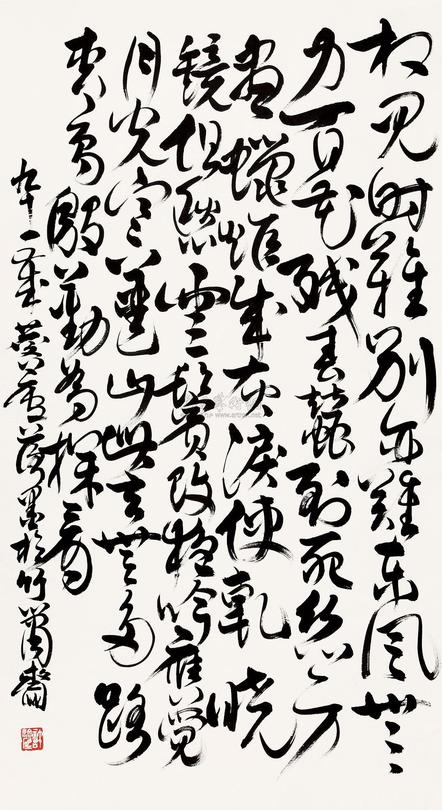 相見時難別亦難東風無
力百花殘春蠶到死絲方
盡蠟炬成灰淚使乾曉
鏡但愁雲鬢改夜吟應覺
月光寒蓬山此去無多路
青鳥殷勤為探看
九十一歲麐廬落墨於竹簫齋